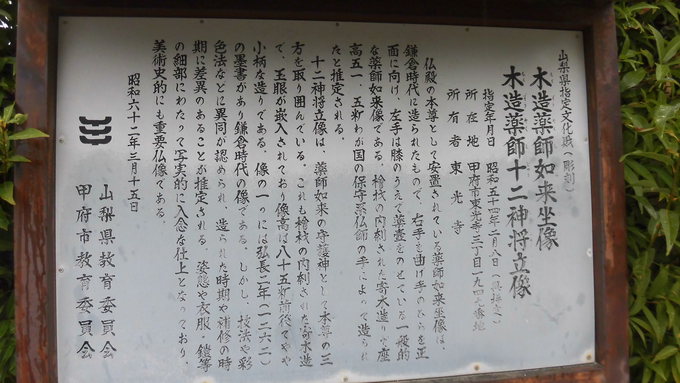 山梨県指定文化財(彫刻)
木造薬師如来坐像
木造薬師十二神将立像
指定年月日 昭和五十四年二月八日(県指定)
所在地 甲府市東光寺三丁目一九四七番地
所有者 東光寺
仏殿の本尊として安置されている薬師如来坐像は、
鎌倉時代に造られたもので、右手を曲げ手のひらを正
面に向け、左手は膝のうえで薬壺をのせている一般的
な薬師如来像である。檜材の内刳された寄木造りで座
高五一、五糎わが国の保守系仏師の手によって造られ
たと推定される。
十二神将立像は、薬師如来の守護神として本尊の三
方を取り囲んでいる。これも檜材の内刳された寄木造
で、玉眼が嵌入されており像高は八十五糎前後でやや
小柄な造りである。像の一つには弘長二年(一二六二)
の墨書があり鎌倉時代の像である。しかし、技法や彩
色法などに異同が認められ、造られた時期や補修の時
期に差異のあることが推定される。姿態や衣服・鎧等
の細部にわたって写実的に入念な仕上となっており、
美術史的にも重要仏像である。
昭和六十二年三月十五日
山梨県教育委員会
甲府市教育委員会